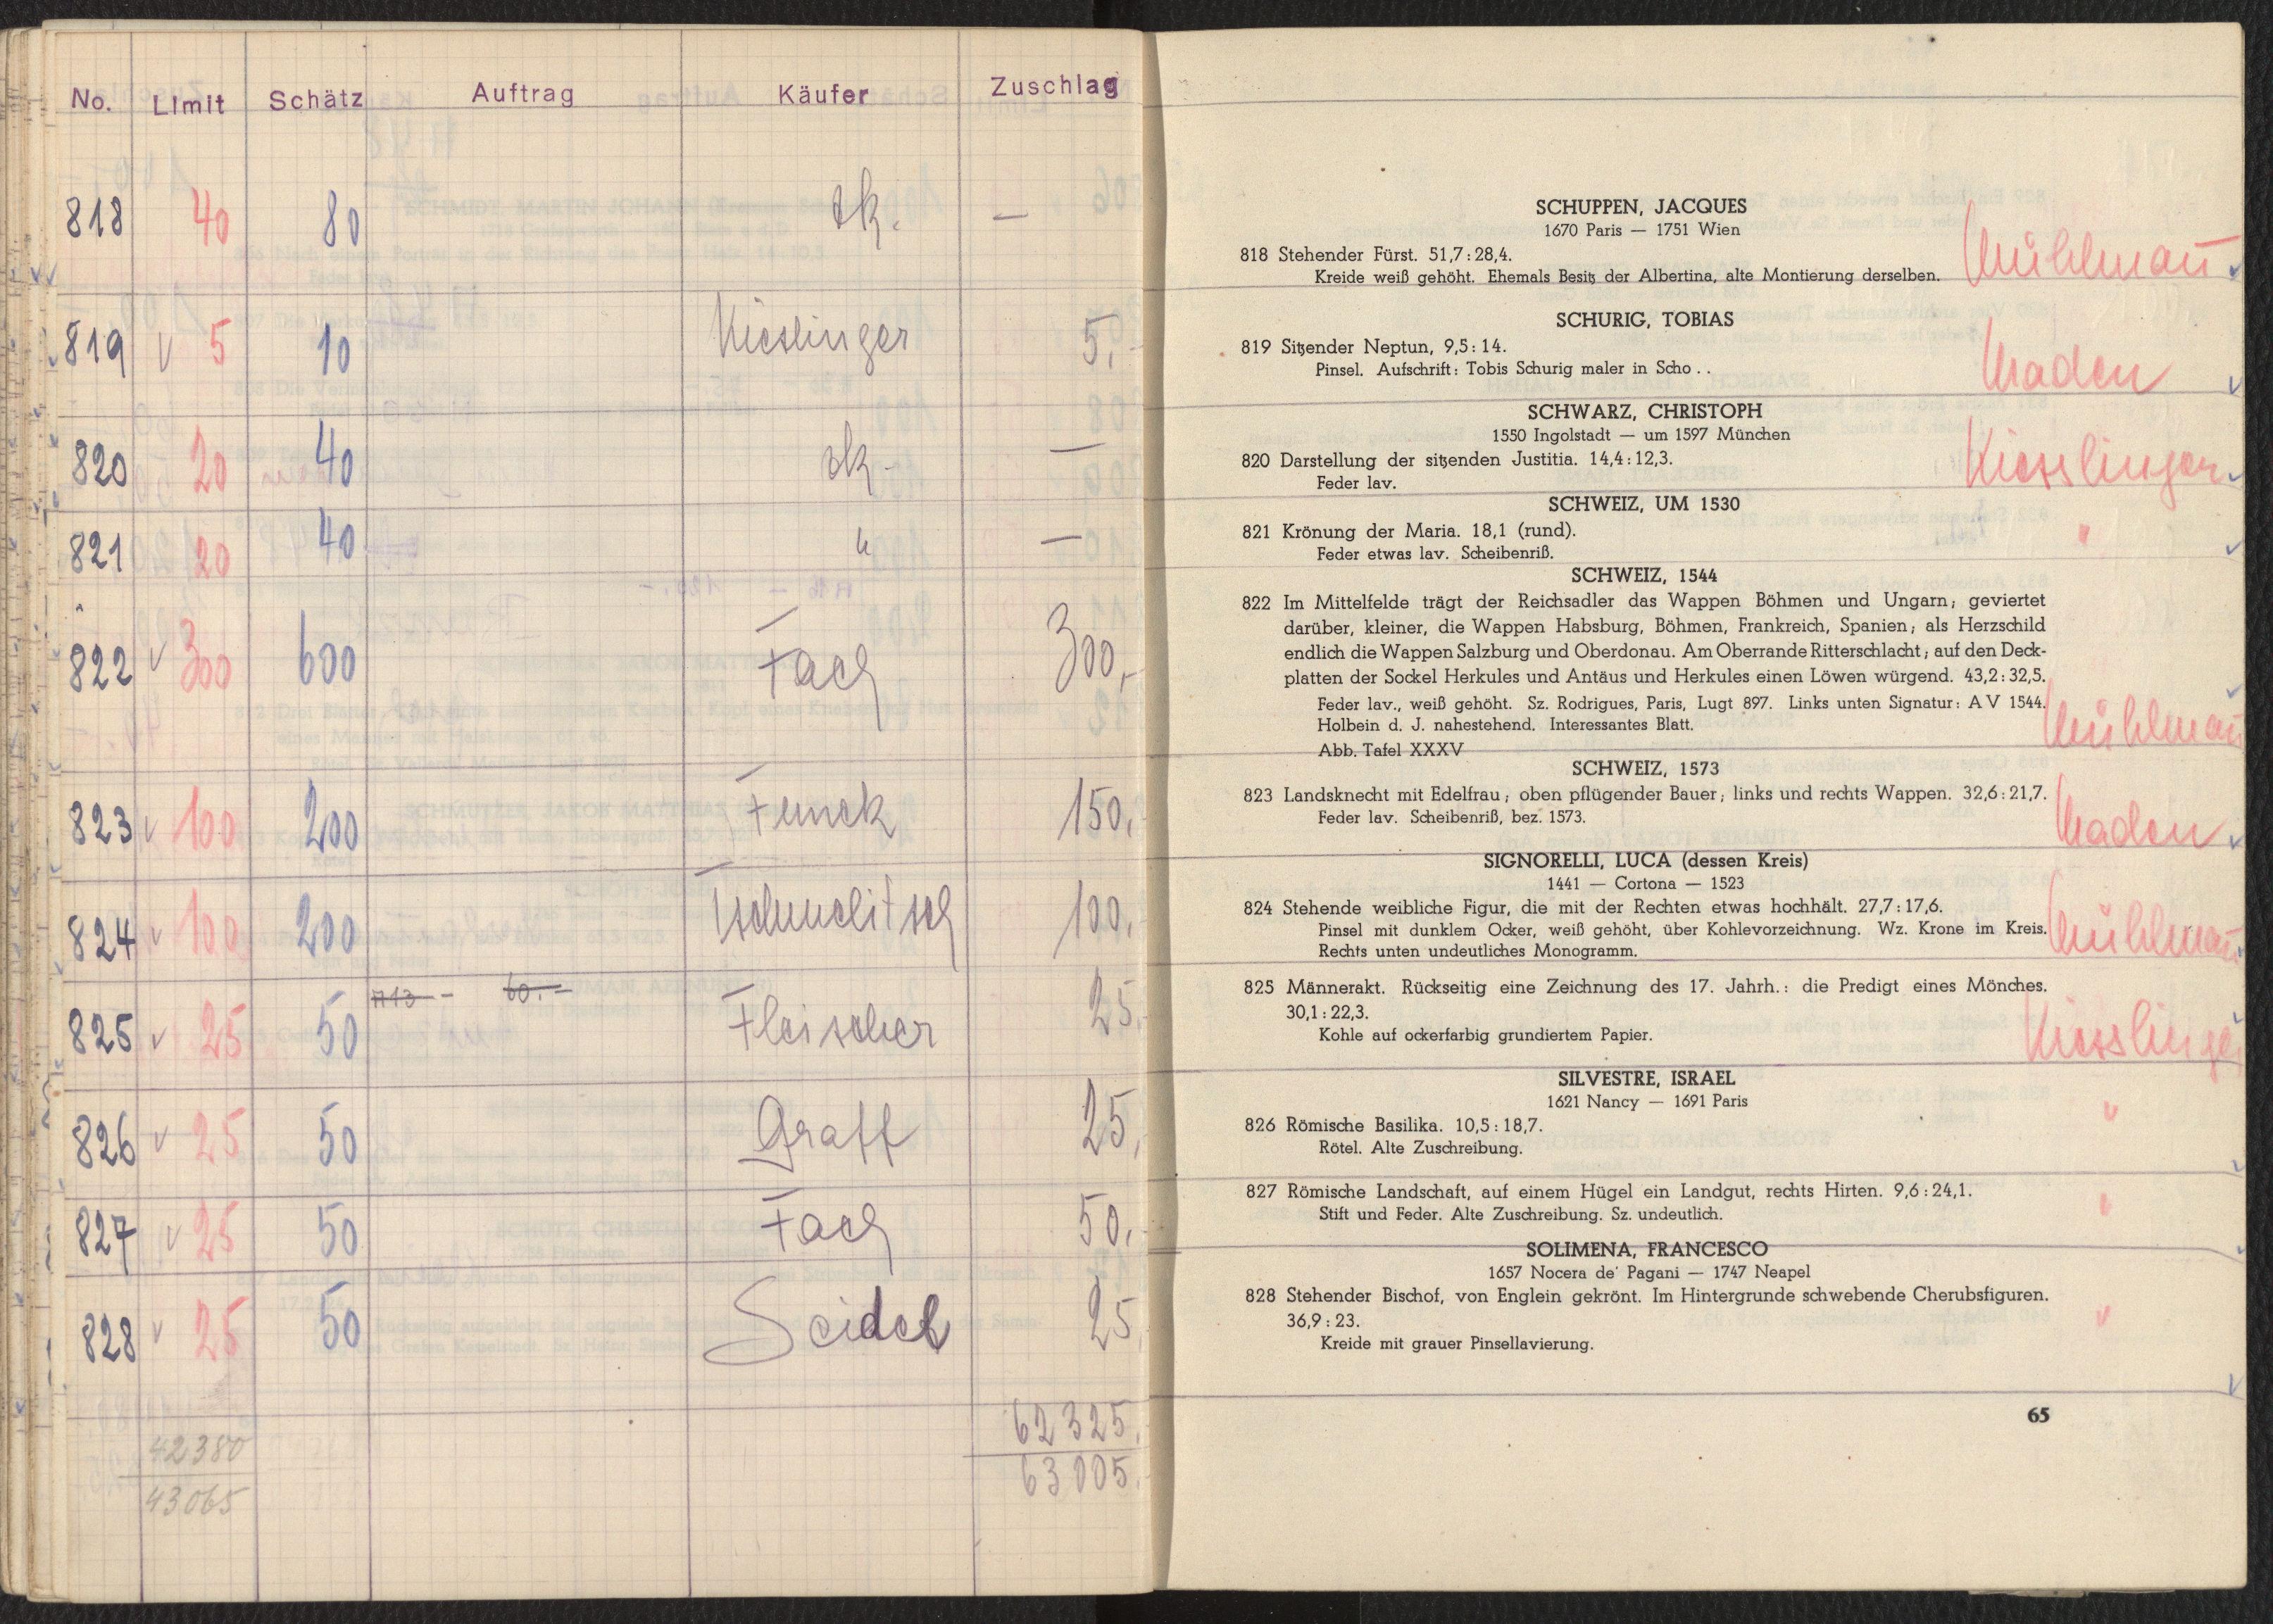 No. Limit Schätz Auftrag Käufer Zuschlag
818 40 80 zk. —
819 v 5 10 Kieslinger 5,-
820 20 40 zk - —
821 20 40 " —
822 v 300 600 Fach 300,-
823 v 100 200 Funck 150,
824 v 100 200 100,
825 v 25 50 A13 - 60.- Fleischer 25,
826 v 25 50 Graff 25,
827 v 25 50 Fach 50,
828 v 25 50 Seidel 25,
62325.
42380
63005.
43065
SCHUPPEN, JACQUES
1670 Paris — 1751 Wien
818 Stehender Fürst. 51,7 : 28,4.
Kreide weiß gehöht. Ehemals Besitz der Albertina, alte Montierung derselben.
Mühlmann
SCHURIG, TOBIAS
819 Sitzender Neptun, 9,5 : 14.
Pinsel. Aufschrift: Tobis Schurig maler in Scho . .
SCHWARZ, CHRISTOPH
1550 Ingolstadt — um 1597 München
820 Darstellung der sitzenden Justitia. 14,4 : 12,3.
Feder lav.
Kiesslinger
SCHWEIZ, UM 1530
821 Krönung der Maria. 18,1 (rund).
"
Feder etwas lav. Scheibenriß.
SCHWEIZ, 1544
822 Im Mittelfelde trägt der Reichsadler das Wappen Böhmen und Ungarn; geviertet
darüber, kleiner, die Wappen Habsburg, Böhmen, Frankreich, Spanien; als Herzschild
endlich die Wappen Salzburg und Oberdonau. Am Oberrande Ritterschlacht; auf den Deck-
platten der Sockel Herkules und Antäus und Herkules einen Löwen würgend. 43,2 : 32,5.
Feder lav., weiß gehöht. Sz. Rodrigues, Paris, Lugt 897. Links unten Signatur: A V 1544.
Holbein d. J. nahestehend. Interessantes Blatt.
Mühlmann
Abb. Tafel XXXV
SCHWEIZ, 1573
823 Landsknecht mit Edelfrau; oben pflügender Bauer; links und rechts Wappen. 32,6 : 21,7.
Feder lav. Scheibenriß, bez. 1573.
SIGNORELLI, LUCA (dessen Kreis)
1441 — Cortona — 1523
824 Stehende weibliche Figur, die mit der Rechten etwas hochhält. 27,7 : 17,6.
Pinsel mit dunklem Ocker, weiß gehöht, über Kohlevorzeichnung. Wz. Krone im Kreis.
Mühlmann
Rechts unten undeutliches Monogramm.
825 Männerakt. Rückseitig eine Zeichnung des 17. Jahrh.: die Predigt eines Mönches.
30,1 : 22,3.
Kohle auf ockerfarbig grundiertem Papier.
Kiesslinger
SILVESTRE, ISRAEL
1621 Nancy — 1691 Paris
826 Römische Basilika. 10,5 : 18,7.
"
Rötel. Alte Zuschreibung.
827 Römische Landschaft, auf einem Hügel ein Landgut, rechts Hirten. 9,6 : 24,1.
"
Stift und Feder. Alte Zuschreibung. Sz. undeutlich.
SOLIMENA, FRANCESCO
1657 Nocera de' Pagani — 1747 Neapel
828 Stehender Bischof, von Englein gekrönt. Im Hintergrunde schwebende Cherubsfiguren.
36,9 : 23.
"
Kreide mit grauer Pinsellavierung.
65